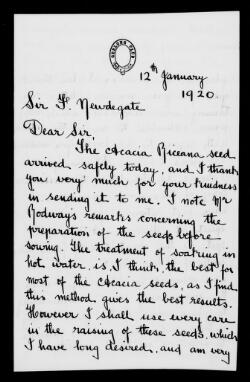 12th January
1920.
Sir F. Newdegate
Dear Sir,
The Acacia Riceana seed
arrived safely today, and I thank
you very much for your kindness
in sending it to me. I note Mr
Rodway's remarks concerning the
preparation of the seeds before
sowing. The treatment of soaking in
hot water is, I think, the best for
most of the Acacia seeds, as I find
this method gives the best results.
However I shall use every care
in the raising of these seeds, which
I have long desired, and am very